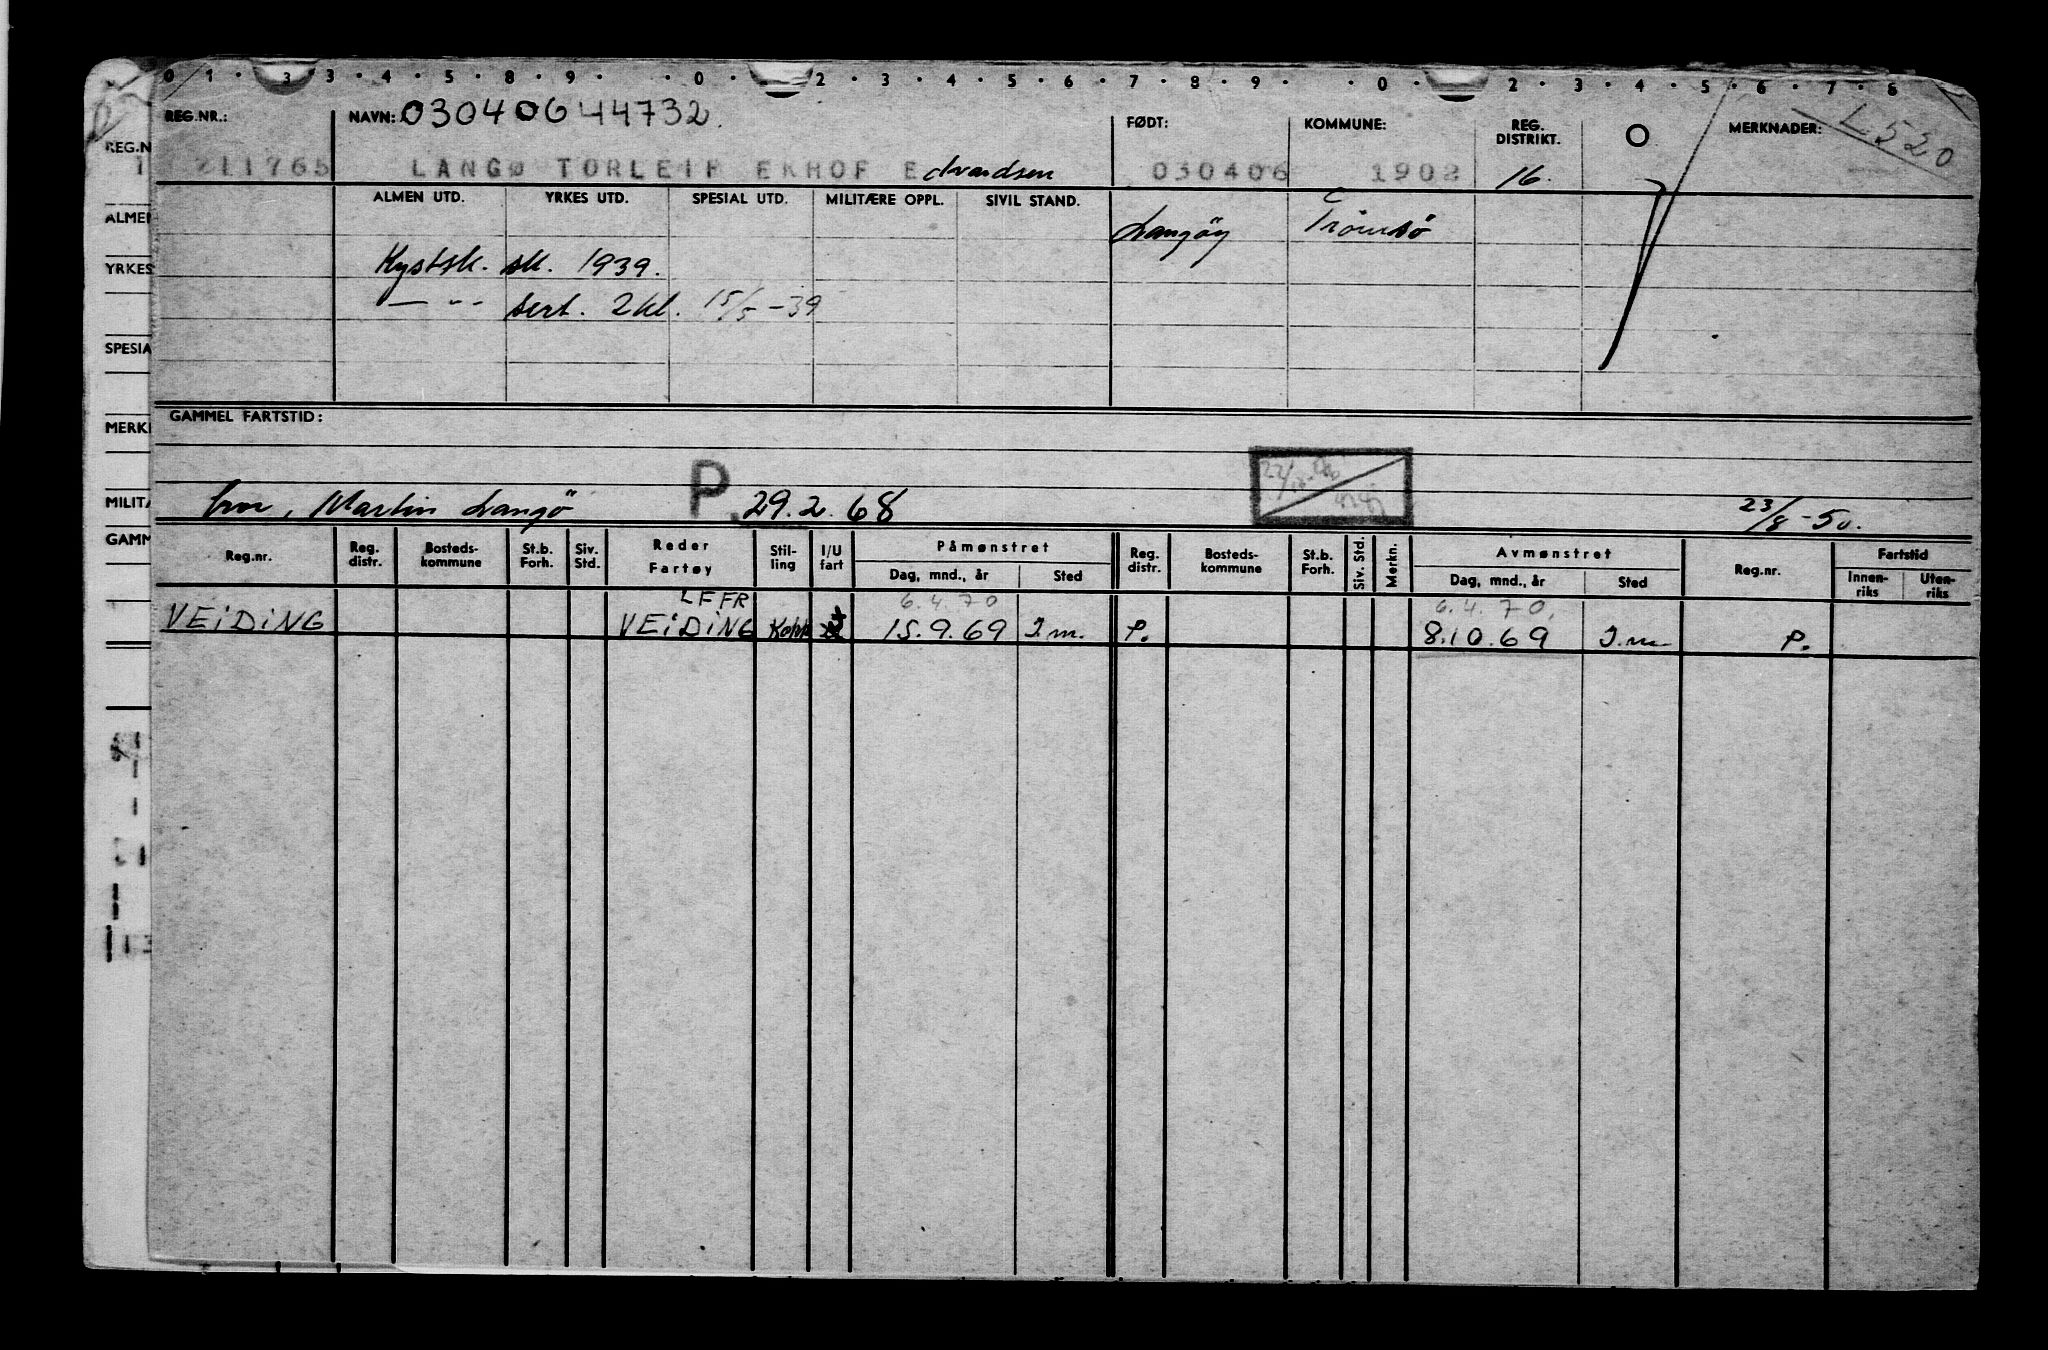 0 1 . 3 3 . 4 . 5 . 8 . 9 . . 0 . 2 . 3 . 4 . 5 . 6 . 7 . 8 . 9 . . 0 . 2 . 3 . 4 . 5 . 6 . 7 . 8
REG.NR.: NAVN: 03040644732. FØDT: KOMMUNE: REG. DISTRIKT. O MERKNADER: L520
211765 LANGØ TORLEIF EKHOF Edvardsen 030406 1902 16.
ALMEN UTD. YRKES UTD. SPESIAL UTD. MILITÆRE OPPL. SIVIL STAND. Langöy Tromsö
Kystsk. sk. 1939.
— " - sert. 2 kl. 15/5 - 39
GAMMEL FARTSTID:
Martin Langö P. 29.2.68 23/8 - 50.
Reg.nr. Reg. distr. Bosteds- kommune St.b. Forh. Siv. Std. Reder Fartøy Stil- ling I/U fart Påmønstret Dag, mnd., år Sted Reg. distr. Bosteds- kommune St.b. Forh. Siv. Std. Merkn. Avmønstret Dag, mnd., år Sted Reg.nr. Fartstid Innen- riks Uten- riks
LFFR 6.4.70 6.4.70.
VEIDING VEIDING 15.9.69 I.m. P. 8.10.69 I.m. P.
REG.N
ALMEN
YRKES
SPESIA
MERKI
MILITÆ
GAMM